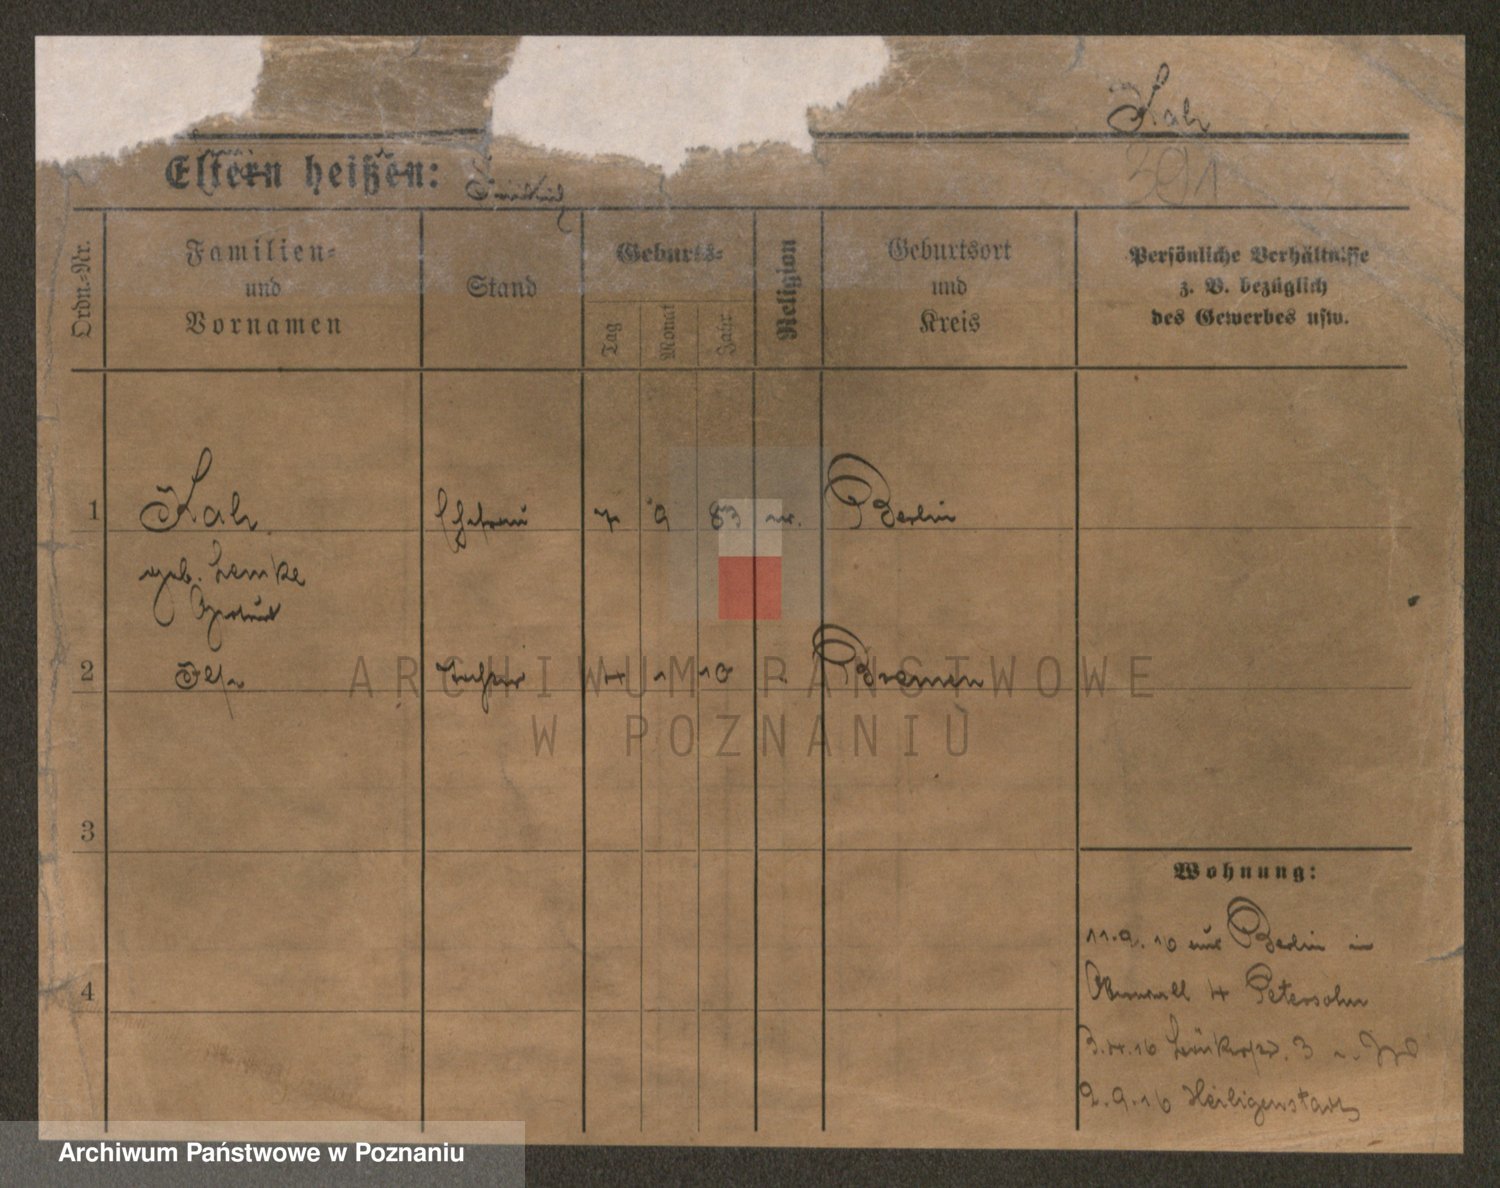 Kah
391
Eltern heißen:
Ordn.-Nr.
Familien-
und
Vornamen
Stand
Geburts-
Tag
Monat
Jahr
Religion
Geburtsort
und
Kreis
Persönliche Verhältnisse
z. B. bezüglich
des Gewerbes usw.
1 Kah Ehefrau 7 9 83 Berlin
geb. Lemke
Gertrud
2 Tochter 4 1 10 Bremen
3
4
Wohnung:
11.9.10 aus Berlin in
4 Petersohn
3.4.16 3
2.9.16 Heiligenstadt
ARCHIWUM PAŃSTWOWE
W POZNANIU
Archiwum Państwowe w Poznaniu